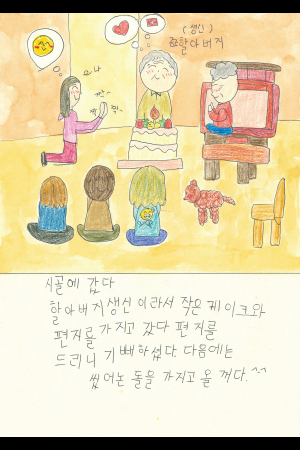 (생신)
할아버지
요나
짝~
짝 짝~
시골에 갔다
할아버지생신 이라서 작은 케이크와
편지를 가지고 갔다 편지를
드리니 기뻐하셨다. 다음에는
씼어논 돌을 가지고 올 꺼다.^^